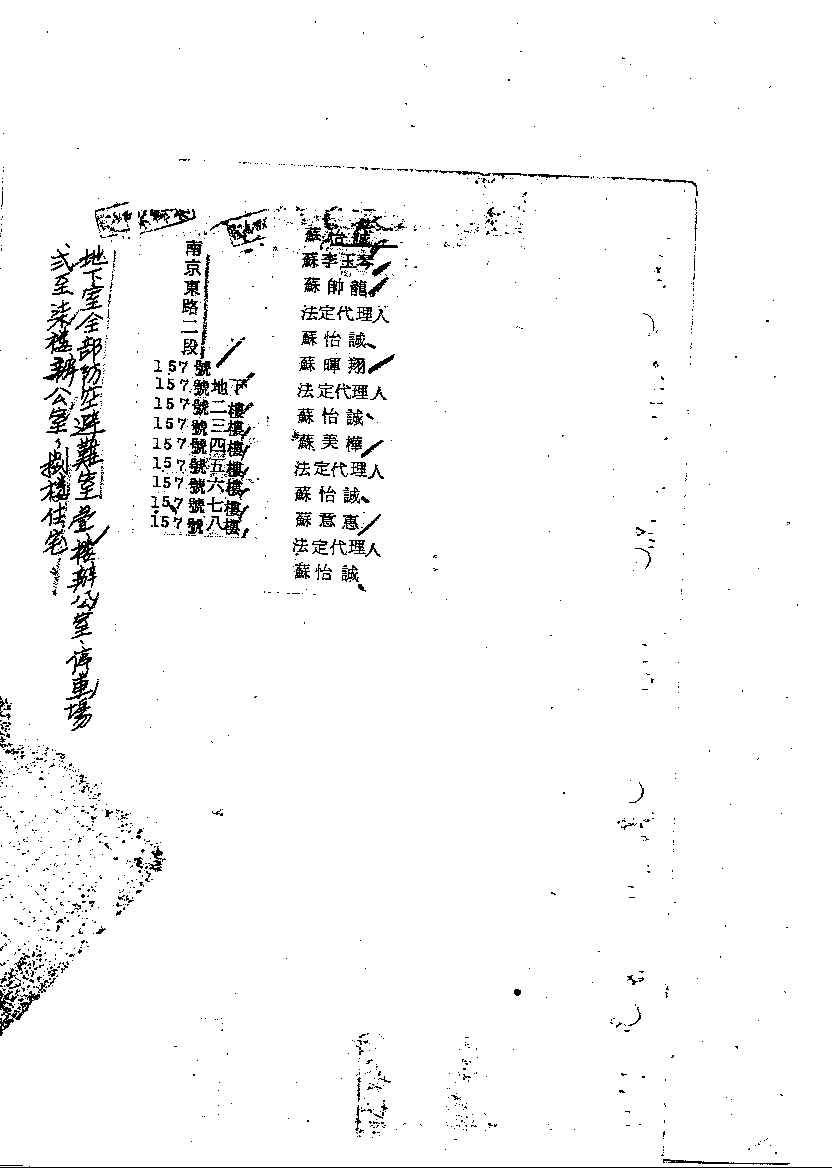 蘇怡誠
蘇李玉琴
蘇帥龍
法定代理人
蘇怡誠
蘇暉翔
法定代理人
蘇怡誠
蘇美樺
法定代理人
蘇怡誠
蘇意惠
法定代理人
蘇怡誠
南京東路二段
157號
157號地下
157號二樓
157號三樓
157號四樓
157號五樓
157號六樓
157號七樓
157號八樓
地下室全部防空避難室壹樓辦公室、停車場
弍至柒樓辦公室，捌樓住宅